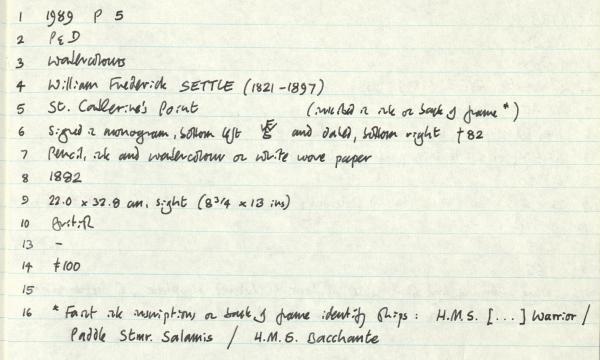 1 1989 P 5
2 P&D
3 Watercolours
4 William Frederick SETTLE (1821-1897)
5 St. Catherine's Point (inscribed in ink on back of frame*)
6 Signed in monogram, bottom left and dated, bottom right +82
7 Pencil, ink and watercolour on white wove paper
8 1882
9 22.0 x 32.8 cm, sight (8 3/4 x 13 ins)
10 British
13 -
14 £100
15
16 * Faint ink inscriptions on back of frame identify ships: H.M.S. [...] Warrior /
Paddle Stmr. Salamis / H.M.S. Bacchante